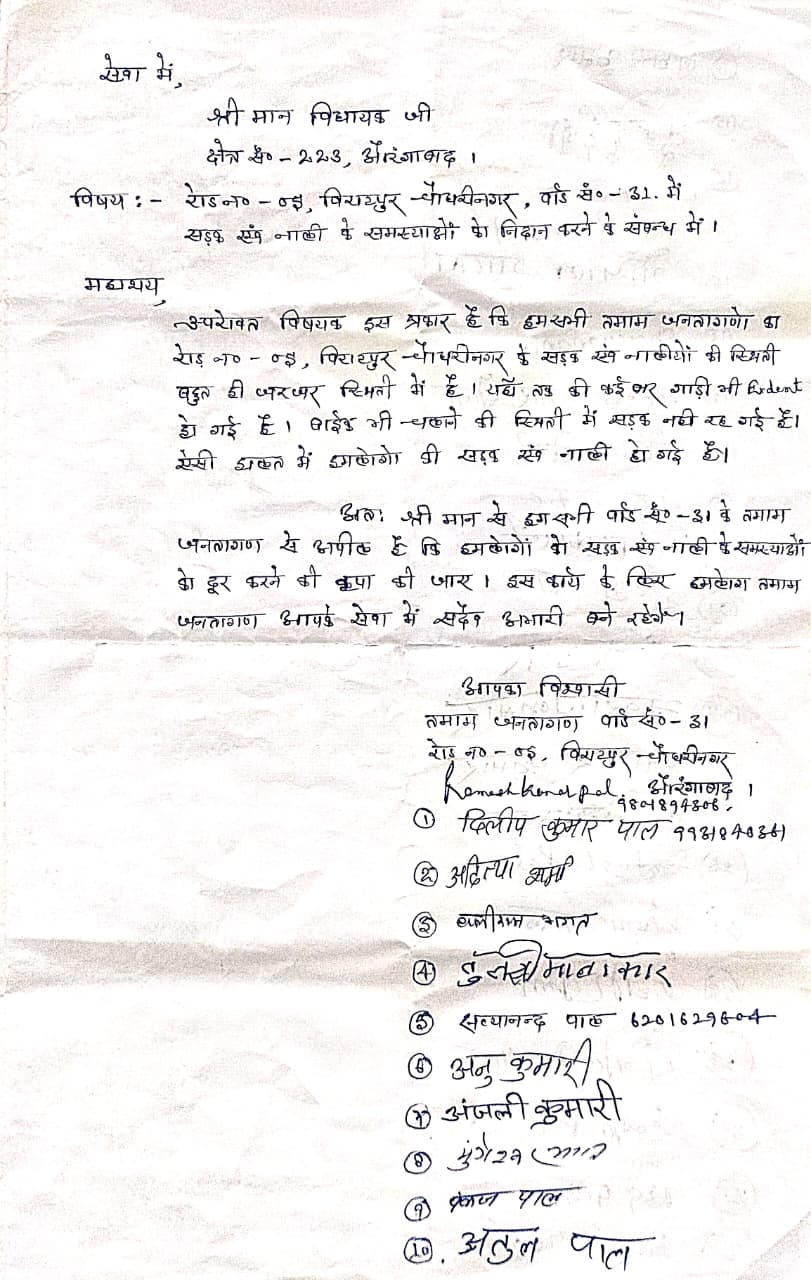 सेवा में,
श्री मान विधायक जी
क्षेत्र सं० - 223, औरंगाबाद ।
विषय : - रोड न० - 03, विराटपुर - चौधरीनगर, वार्ड सं० - 31. में
सड़क एंव नाली के समस्याओं को निदान करने के संबन्ध में ।
महाशय,
उपरोक्त विषयक इस प्रकार है कि हमसभी तमाम जनतागणो का
रोड़ न० - 03, विराटपुर - चौधरीनगर के सड़क एंव नालीयों की स्थिती
बहुत ही जरजर स्थिती में है । यहाँ तक की कई बार गाड़ी भी
हो गई है । बाईक भी चलाने की स्थिती में सड़क नही रह गई है।
ऐसी हालत में हमलोगो की सड़क एंव नाली हो गई है।
अतः श्री मान से हम सभी वार्ड सं० - 31 के तमाम
जनतागण से अपील है कि हमलोगों का सड़क एंव नाली के समस्याओं
को दूर करने की कृपा की जाए । इस कार्य के लिए हमलोग तमाम
जनतागण आपके सेवा में सदैव अभारी बने रहेगें।
आपका विश्वासी
तमाम जनतागण वार्ड सं० - 31
रोड न० - 03, विराटपुर - चौधरीनगर
औरंगाबाद ।
① दिलीप कुमार पाल
② अदित्या शर्मा
③ भगत
④
⑤ सत्यानन्द पाल 6201629604
⑥ अनु कुमारी
⑦ अंजली कुमारी
⑧
⑨ पाल
⑩. अतुल पाल